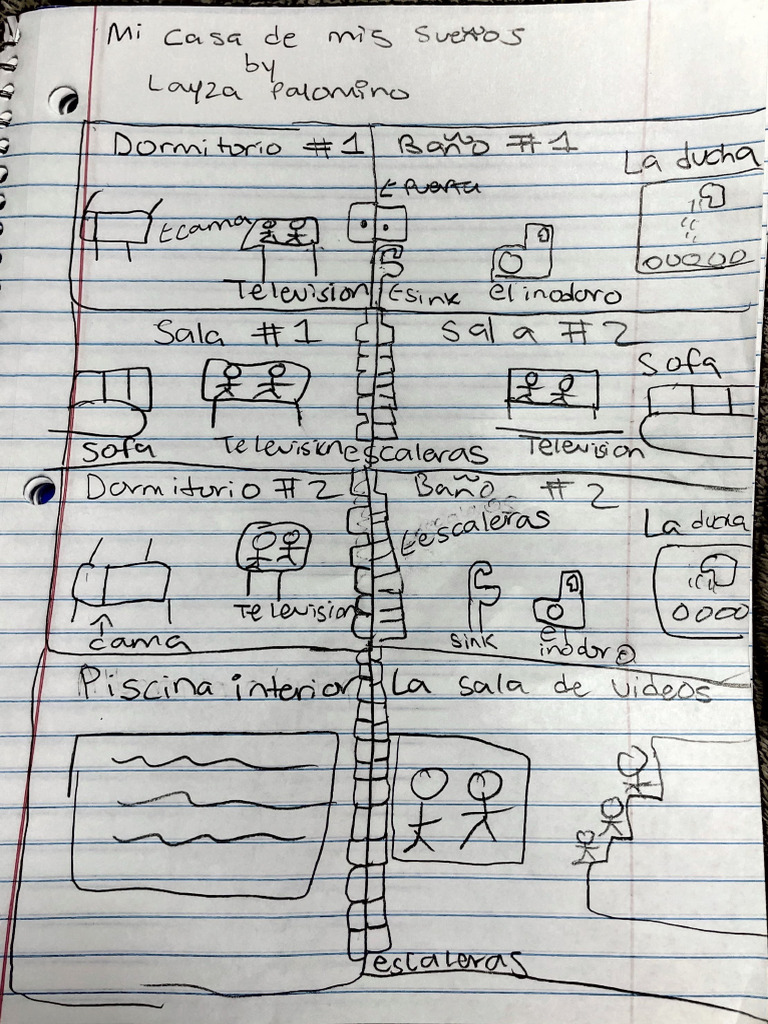 Mi casa de mis sueños
by
Layza Palomino
Dormitorio #1
Baño #1
La ducha
puerta
cama
Television
sink
el inodoro
Sala #1
Sala #2
Sofa
sofa
Television
escaleras
Television
Dormitorio #2
Baño #2
escaleras
La ducha
Television
cama
sink
el
inodoro
Piscina interior
La sala de videos
escaleras